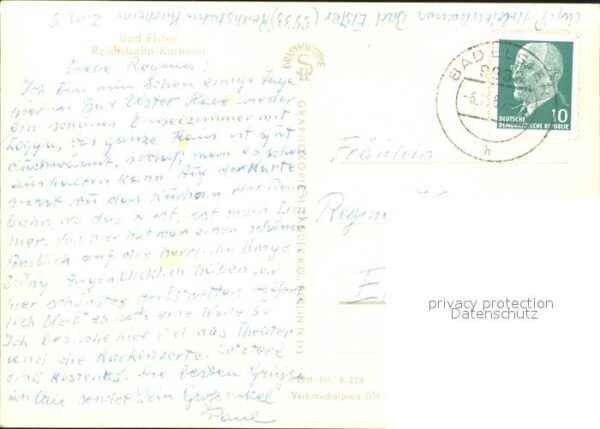 Bad Elster (9933) Reichsbahn Kurheim
Bad Elster
Reichsbahn-Kurheim
Liebe Regina!
Ich bin nun schon einige Tage
hier in Bad Elster. Habe wieder
ein schönes Einzelzimmer mit
Loggia, das ganze Haus ist gut
durchwärmt, sodaß man es schon
aushalten kann. Auf der Karte
siehst du das Kurheim der Reichs-
bahn, wo das x ist, ist mein Zim-
mer. Von hier hat man einen schönen
Ausblick auf die herrliche Umge-
bung. Augenblicklich haben wir
hier schönstes Herbstwetter. Hoffent-
lich bleibt es noch eine Weile so.
Ich besuche hier viel das Theater
und die Kurkonzerte. Letztere
sind kostenlos. Die besten Grüße
an Euch sendet Dein Großonkel
Paul
GRAPHOKOPIE
GRAPHOKOPIE H. SANDER K.G., BERLIN N 113
Best.-Nr. R 223
Verbraucherpreis DM
BAD ELSTER
993
h
DEUTSCHE
DEMOKRATISCHE REPUBLIK
10
Fräulein
privacy protection
Datenschutz